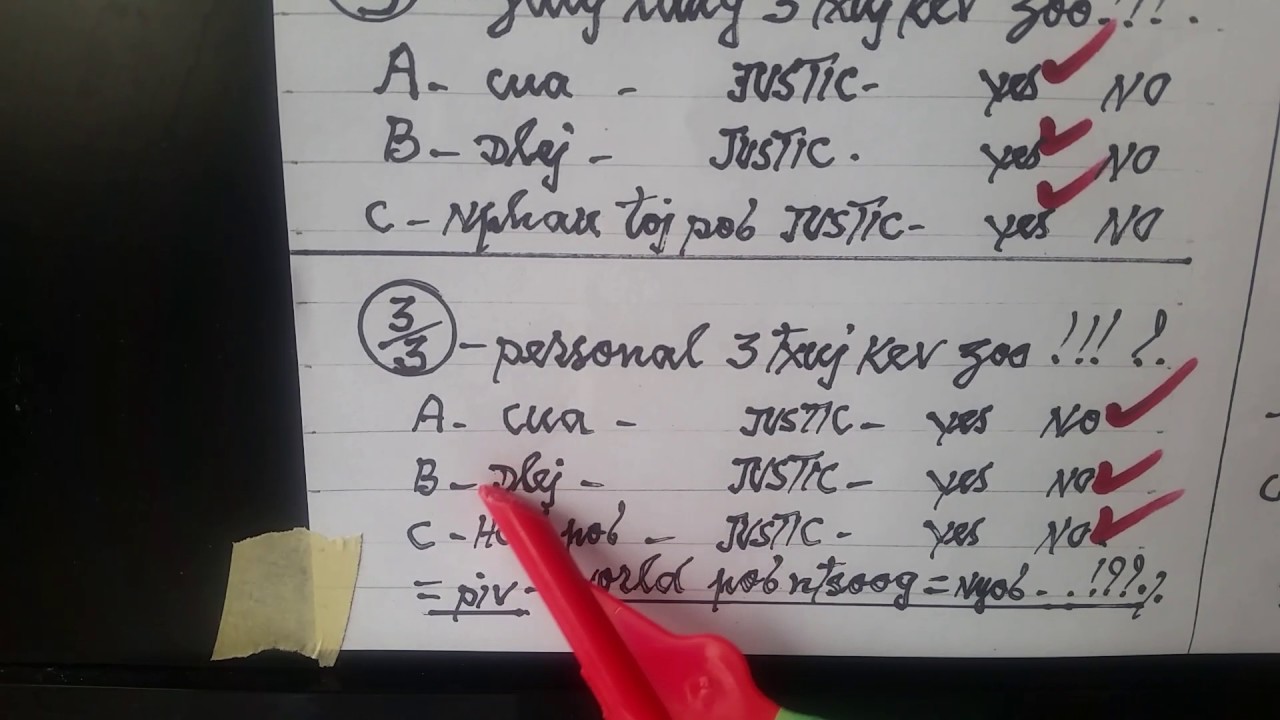 3 txuj kev zoo.!!!.
A- cua - JUSTIC- yes NO
B- Dlej - JUSTIC. yes NO
C- Nphau toj pob JUSTIC- yes NO
3/3 - personal 3 txuj kev zoo !!! ?.
A- cua - JUSTIC- yes NO
B- Dlej - JUSTIC- yes NO
C- pob - JUSTIC- yes NO
= piv - world pob ntsoog = Nyob - . .!???